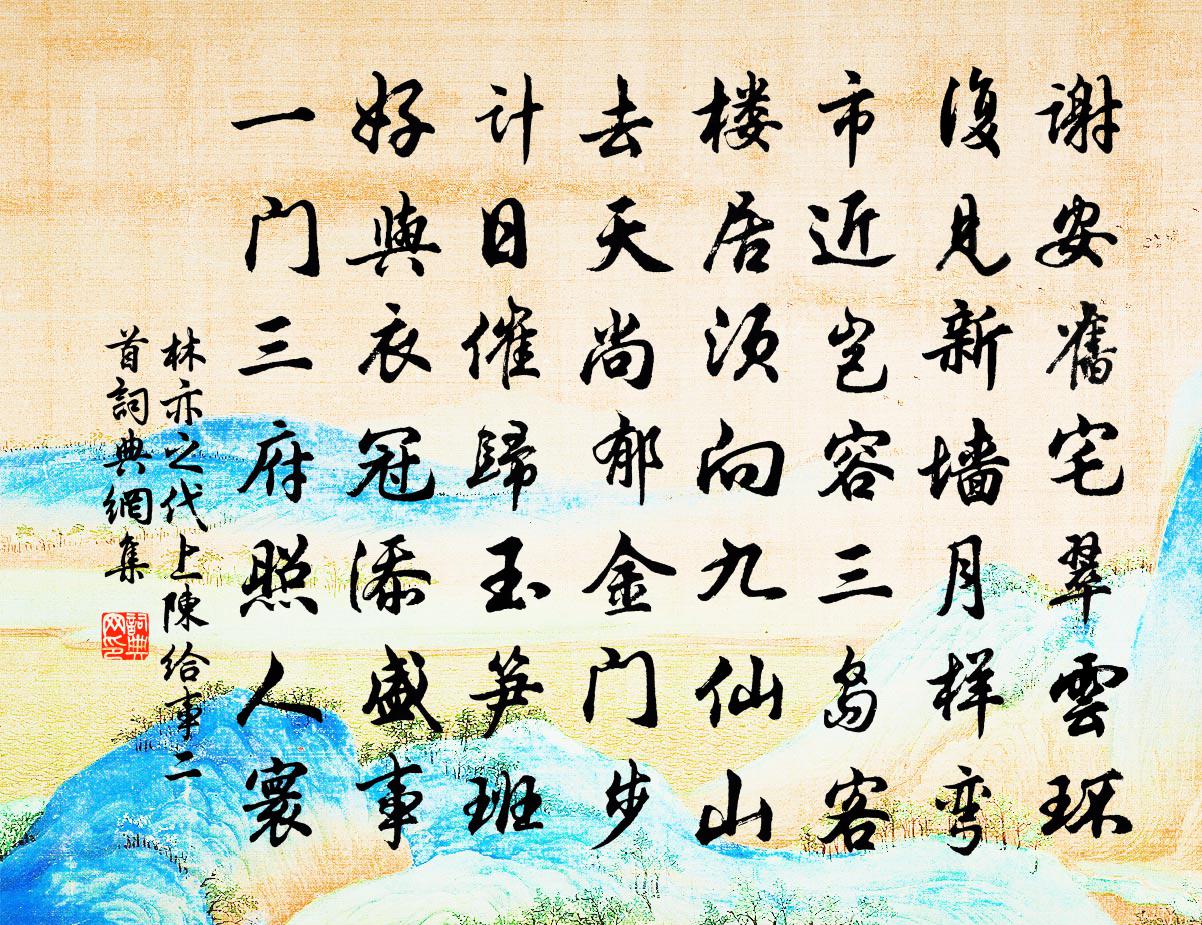 谢安舊宅翠雲环
復见新墙月样弯
市近岂容三岛客
楼居须向九仙山
去天尚郁金门步
计日催歸玉笋班
好與衣冠添盛事
一门三府照人寰
林亦之代上陳给事二
首詞典網集
詞典网印